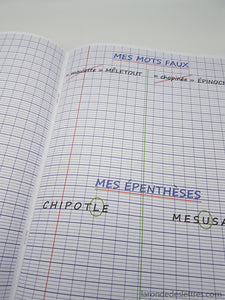 MES MOTS FAUX
= moulette = MÉLETOUT = chopinée = ÉPINOC
MES ÉPENTHÈSES
CHIPOTLE MESUSA
larondedeslettres.com